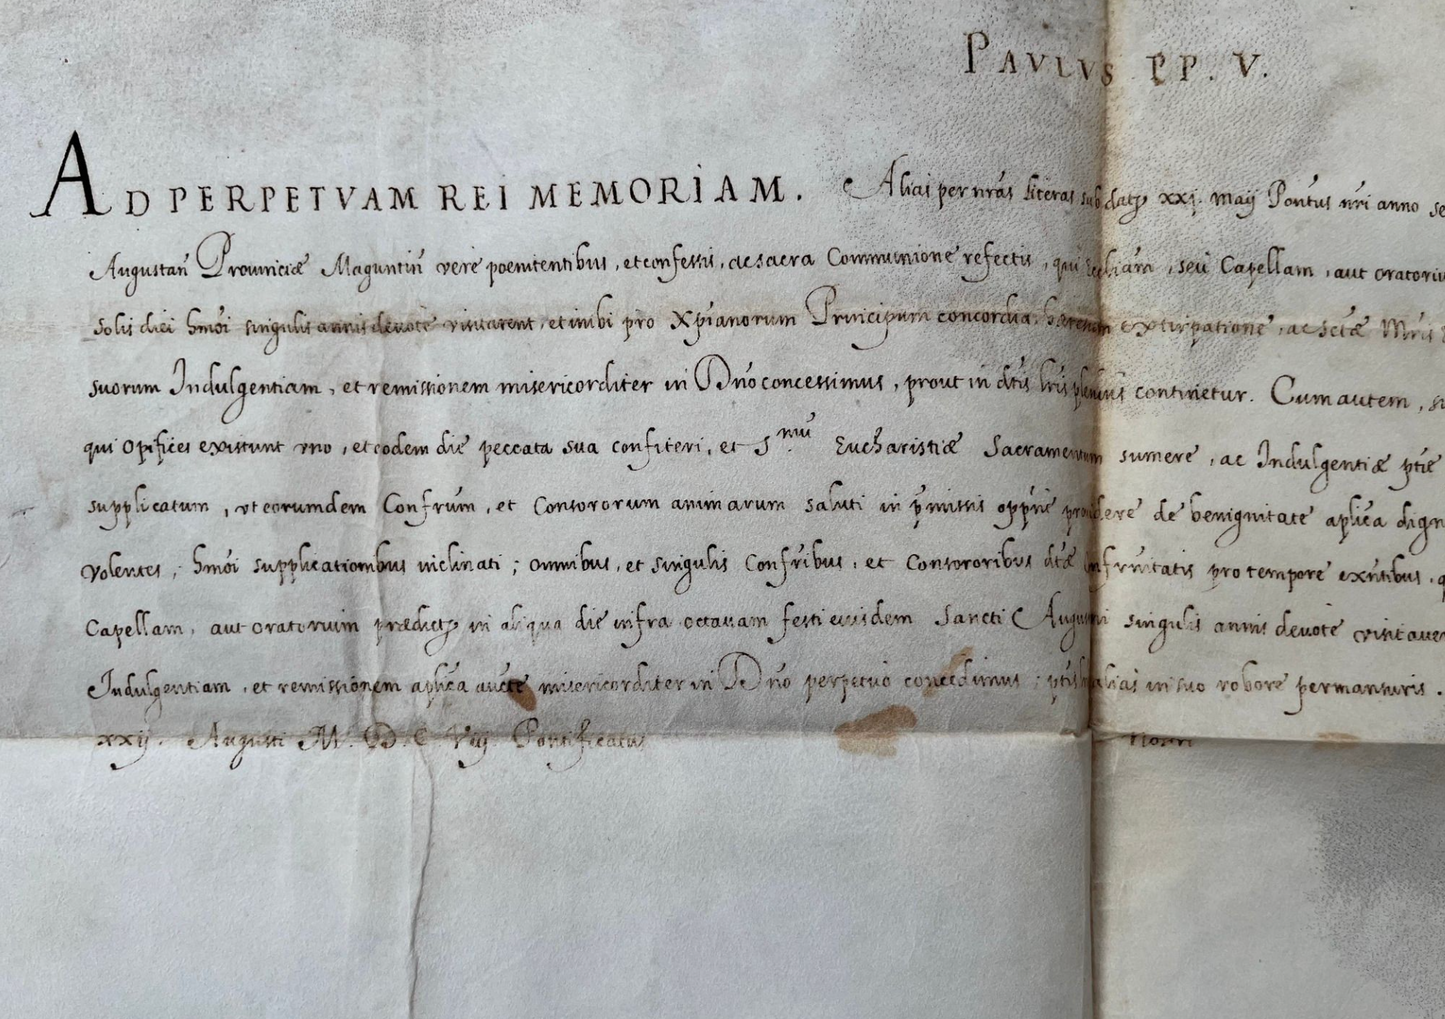 PAVLVS PP. V.
AD PERPETVAM REI MEMORIAM. Alias per nr̃as literas sub datꝭ xxj. Maij Pontus nr̃i anno se
Augustañ Prouinciæ Maguntiñ vere poenitentibus, et confessis, ac sacra Communione refectis, qui Eccliam, seu Capellam, aut oratoriu
Solis diei hmõi singulis annis deuotè visitarent, et inibi pro Xp̃ianorum Principum concordia, hæresum extirpatione, ac sctæ Mr̃is
suorum Indulgentiam, et remissionem misericorditer in Dño concessimus, prout in dtis lr̃is plenius continetur. Cum autem, si
qui opifices existunt vno, et eodem die peccata sua confiteri, et S.mũ Eucharistiæ Sacramentum sumere, ac Indulgentiæ ptie
supplicatum, vt eorumdem Confrum̃, et Consororum animarum saluti in p̃missis opp̃nè prouidere de benignitate aplica dign
volentes, hmõi supplicationibus inclinati; omnibus, et singulis Confr̃ibus, et Consororibus dtæ Confrñitatis pro tempore exñtibus, q
Capellam, aut oratorium prædictꝭ in aliqua die infra octauam festi eiusdem Sancti Augustini singulis annis deuotè visitauer
Indulgentiam, et remissionem aplica aucte misericorditer in Dño perpetuò concedimus; ptis alias in suo robore permansuris.
xxij. Augusti M. D. C. Viij. Pontificatus nostri